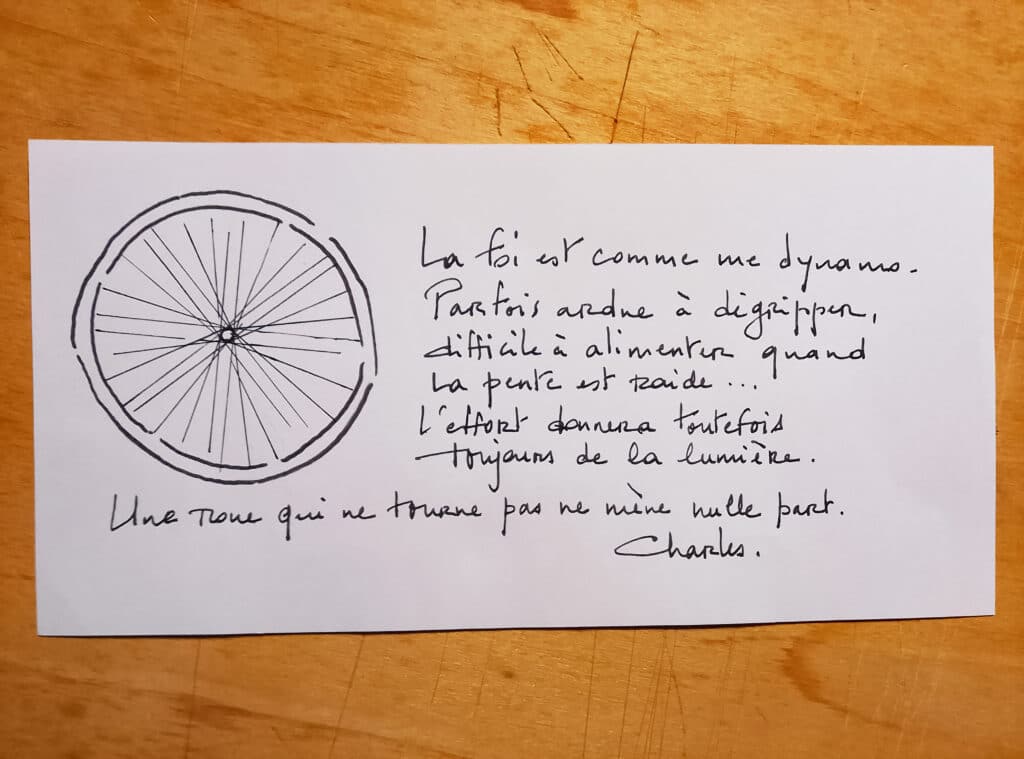 La foi est comme une dynamo.
Parfois ardue à dégripper,
difficile à alimenter quand
la pente est raide ...
L'effort donnera toutefois
toujours de la lumière.
Une roue qui ne tourne pas ne mène nulle part.
Charles.